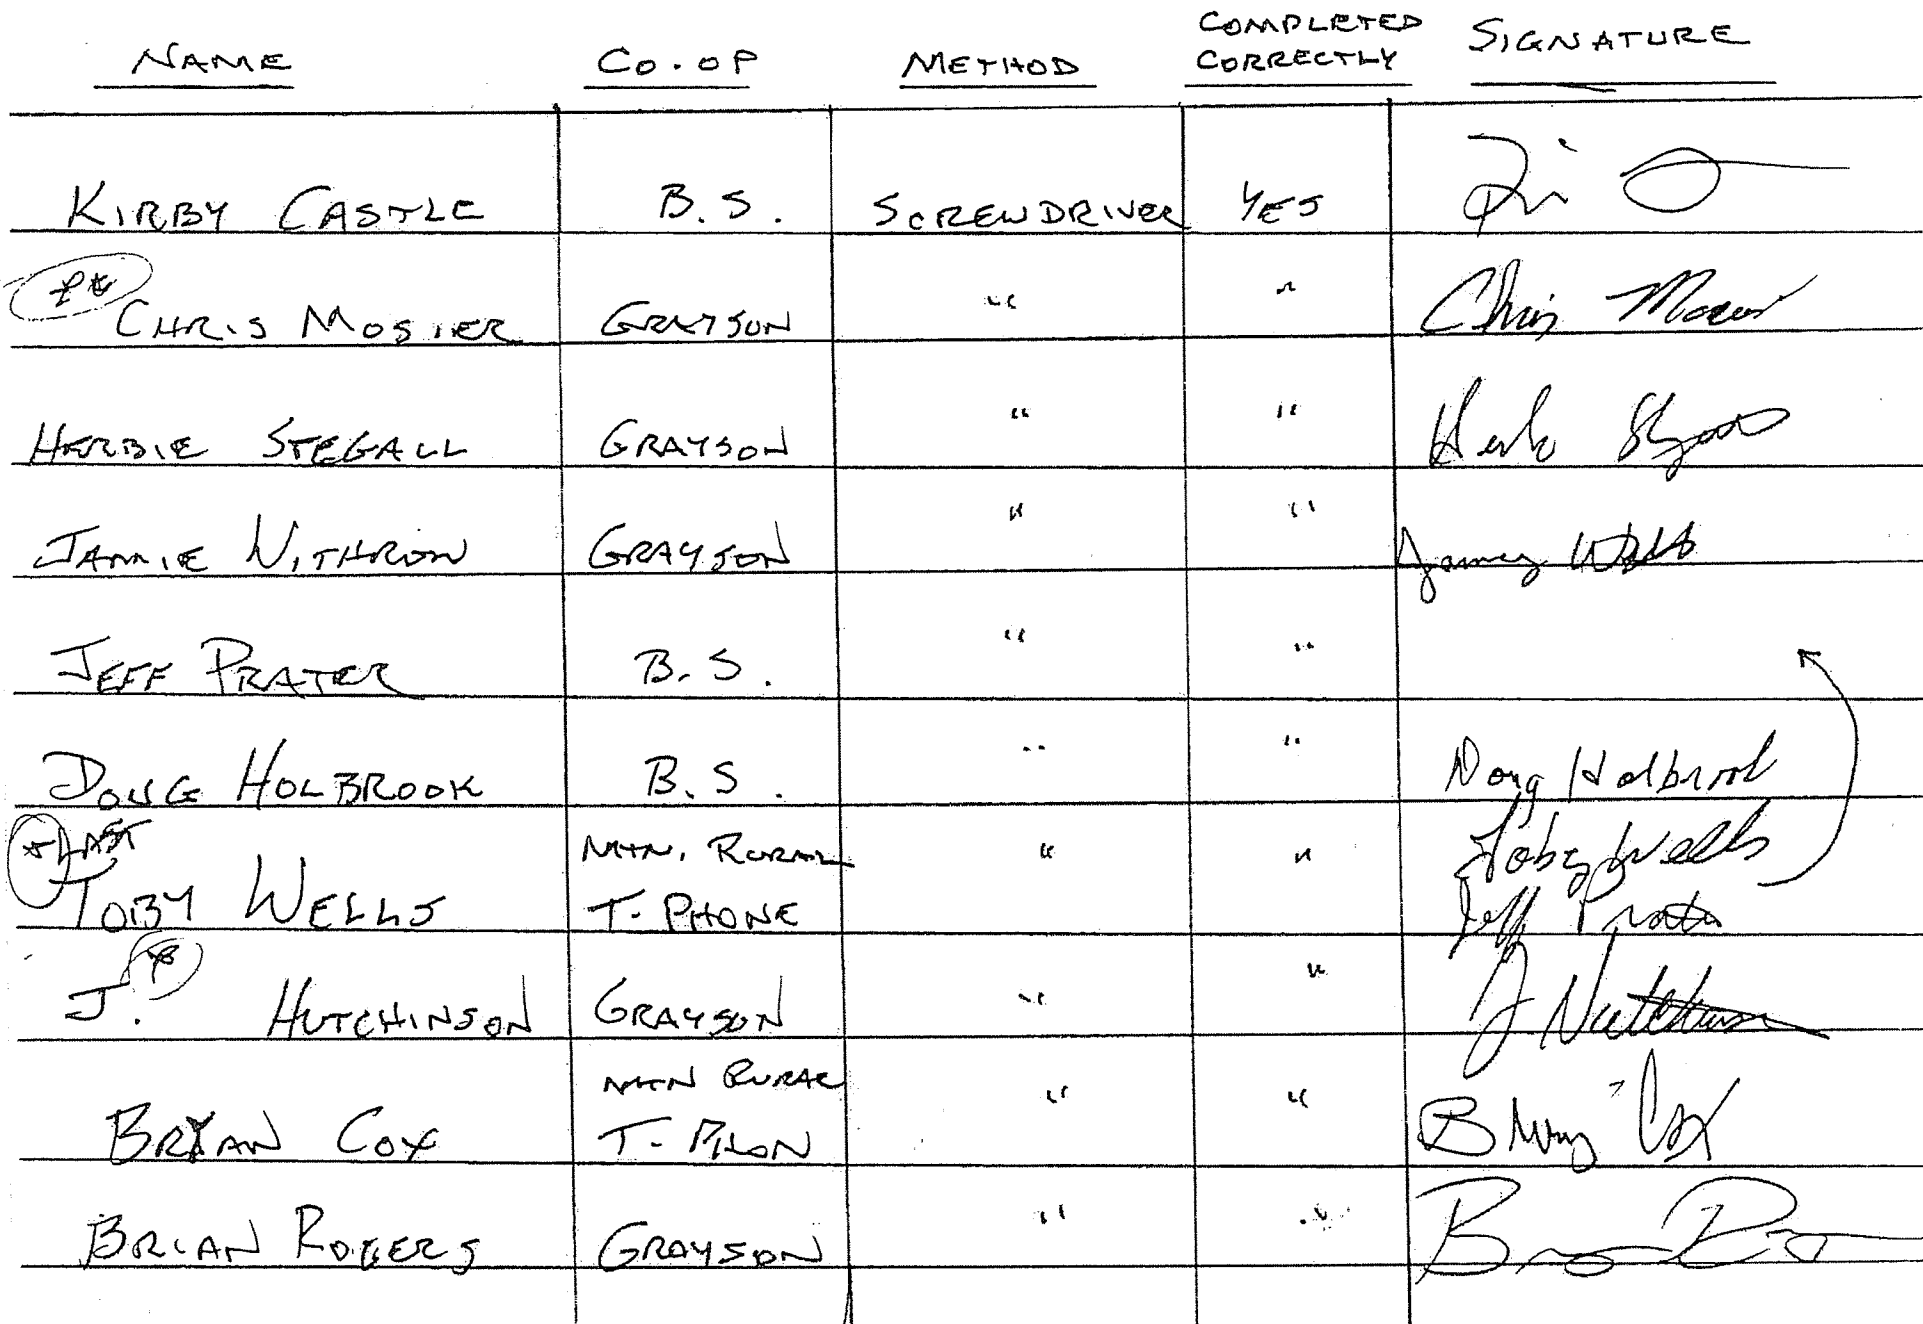 NAME CO-OP METHOD COMPLETED CORRECTLY SIGNATURE
KIRBY CASTLE B.S. SCREWDRIVER YES
CHRIS MOSIER GRAYSON " " Chris
HERBIE STEGALL GRAYSON " " Herb
JAMIE WITHROW GRAYSON " "
JEFF PRATER B.S. " "
DOUG HOLBROOK B.S. " " Doug Holbrook
* LAST
TOBY WELLS MTN. RURAL T-PHONE " " Toby Wells
Jeff Prater
J. HUTCHINSON GRAYSON " " J Hutchinson
BRYAN COX MTN RURAL T-PHON " " Cox
BRIAN ROGERS GRAYSON " "